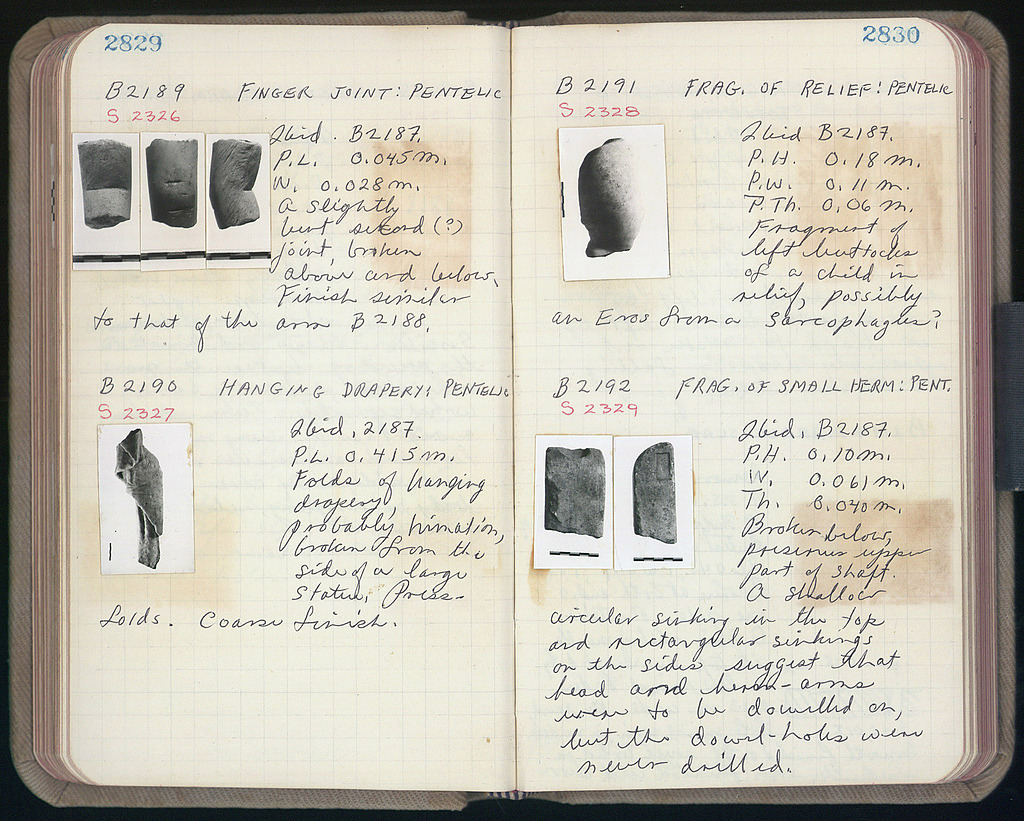 2829
B 2189 FINGER JOINT: PENTELIC
S 2326
Ibid. B2187.
P.L. 0.045 m.
W. 0.028 m.
A slightly
bent second (?)
joint, broken
above and below.
Finish similar
to that of the arm B 2188.
B 2190 HANGING DRAPERY: PENTELIC
S 2327
Ibid, 2187.
P.L. 0.415 m.
Folds of hanging
drapery,
probably himation,
broken from the
side of a large
statue. Press-
folds. Coarse finish.
2830
B 2191 FRAG. OF RELIEF: PENTELIC
S 2328
Ibid B2187.
P.H. 0.18 m.
P.W. 0.11 m.
P.Th. 0.06 m.
Fragment of
left buttocks
of a child in
relief, possibly
an Eros from a sarcophagus?
B 2192 FRAG. OF SMALL HERM: PENT.
S 2329
Ibid, B2187.
P.H. 0.10 m.
W. 0.061 m.
Th. 0.040 m.
Broken below,
preserves upper
part of shaft.
A shallow
circular sinking in the top
and rectangular sinkings
on the sides suggest that
head and herm-arms
were to be dowelled on,
but the dowel-holes were
never drilled.